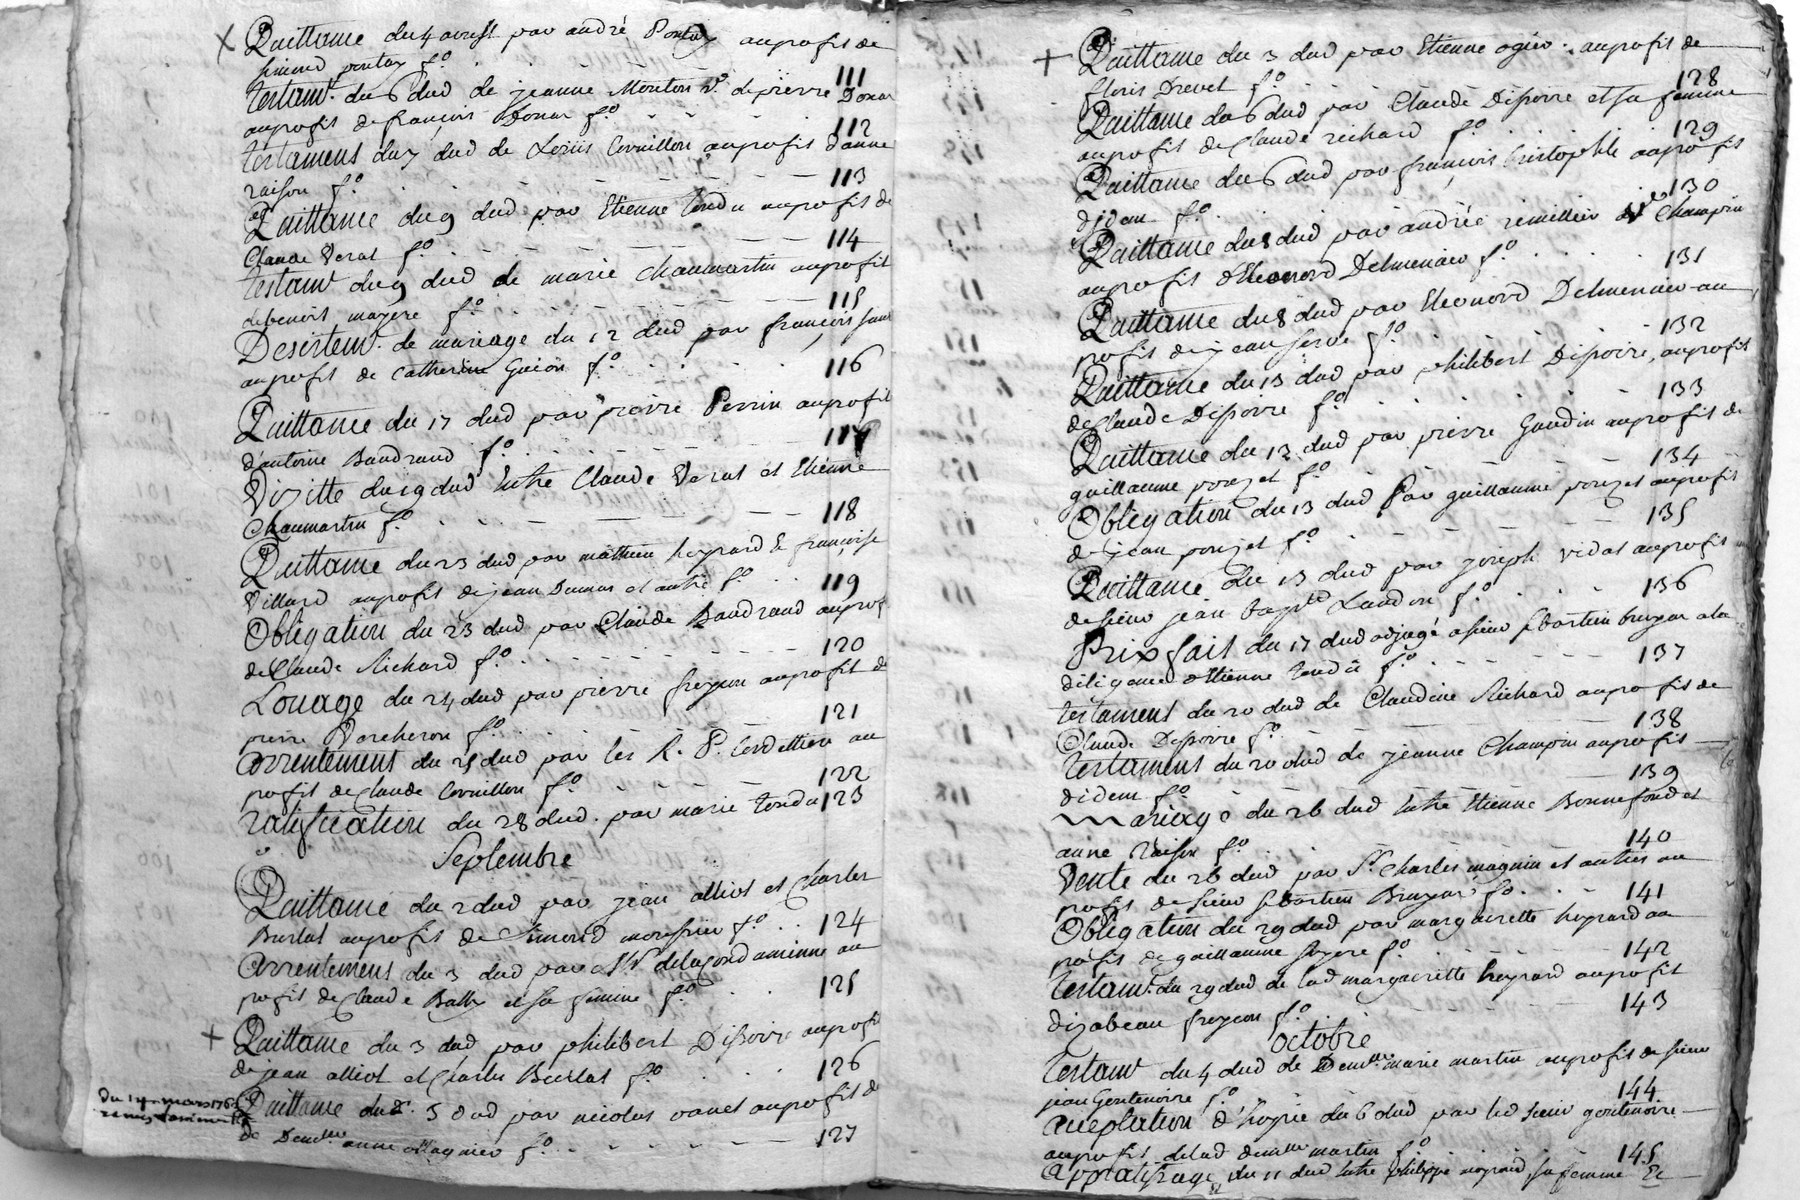 X Quittance du 4 aoust par andré Pontuy auproffit de
simond pontuy f.o 111
testam.t du 6 dud de jeanne Mouton v.e de pierre Donat
auproffit de françois Donat f.o 112
testament du 7 dud de Loüis Cornillon auproffit d'anne
raison f.o 113
Quittance du 9 dud par Etienne tondu auproffit de
Claude Verat f.o 114
testam.t du 9 dud de marie chaumartin auproffit
de benoit mayere f.o 115
Desistem.t de mariage du 12 dud par françois
auproffit de catherine Guion f.o 116
Quittance du 17 dud par pierre Perrin auproffit
d'antoine Baudrand f.o 117
Vizitte du 19 dud Entre Claude Verat et Etienne
Chaumartin f.o 118
Quittance du 23 dud par mathieu heyrard & françoise
Villard auproffit de jean Dumas et autre f.o 119
Obligation du 23 dud par Claude Baudrand auproffit
de Claude Richard f.o 120
Louage du 24 dud par pierre freycon auproffit de
pierre Porcheron f.o 121
arrentement du 25 dud par les R. P. Cordelliers au
proffit de Claude Cornillon f.o 122
ratiffication du 28 dud par marie tondu 123
Septembre
Quittance du 2 dud par jean alliot et Charles
Burlat auproffit de Simond f.o 124
arrentement du 3 dud par delagondamine au
proffit de Claude Bally et sa femme f.o 125
+ Quittance du 3 dud par philibert Dissoire auproffit
de jean alliot et Charles Burlat f.o 126
du mars 176
Quittance du 5 dud par nicolas vanel auproffit de
de Dem.lle anne Magnier f.o 127
+ Quittance du 3 dud par Etienne ogier auproffit de
floris Drevet f.o 128
Quittance du 6 dud par Claude Dissoire et sa femme
auproffit de Claude richard f.o 129
Quittance du 6 dud par françois Cristophle auproffit
didem f.o 130
Quittance du 8 dud par andrée remillier v.e Champin
auproffit d'Eleonord Delmenico f.o 131
Quittance du 8 dud par Eleonord Delmenico au
proffit de jean serve f.o 132
Quittance du 13 dud par philibert Dissoire auproffit
de Claude Dissoire f.o 133
Quittance du 13 dud par pierre Gaudin auproffit de
guillaume pouzet f.o 134
Obligation du 13 dud Par guillaume pouzet auproffit
de jean pouzet f.o 135
Quittance du 13 dud par joseph vidal auproffit
de sieur jean bapt.te Landon f.o 136
Prix fait du 17 dud adjugé a sieur sebastien bruyas a la
diligance d'Etienne tondu f.o 137
testament du 20 dud de Claudine Richard auproffit de
Claude Dissoire f.o 138
testament du 20 dud de jeanne Champin auproffit
didem f.o 139
Mariage du 26 dud Entre Etienne Bonnefond et
anne Raison f.o 140
Vente du 26 dud par S.r Charles magnin et autres au
proffit de sieur sebastien Bruyas f.o 141
Obligation du 29 dud par marguerette heyrard au
proffit de guillaume f.o 142
testam.t du 29 dud de lad marguerette heyrard auproffit
dizabeau freycon f.o 143
octobre
testam.t du 4 dud de Dem.lle marie martin auproffit de sieur
jean Gontenoire f.o 144
acceptation d'hoyrie du 6 dud par led sieur gontenoire
auproffit delad dem.lle martin f.o 145
apprantissage du 11 dud Entre philippe sa femme &